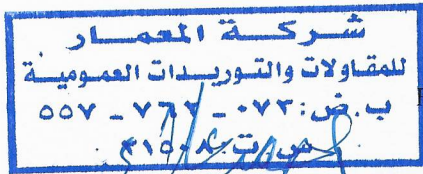 شركة المعمار
للمقاولات والتوريدات العمومية
ب.ض: ٠٧٣ - ٧٦٢ - ٥٥٧
س.ت: ٣١٥٠٨